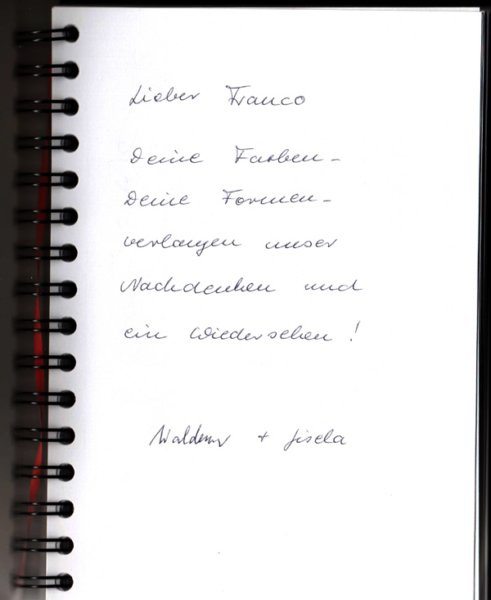 Lieber Franco
Deine Farben -
Deine Formen -
verlangen unser
Nachdenken und
ein Wiedersehen !
Waldemar + Gisela